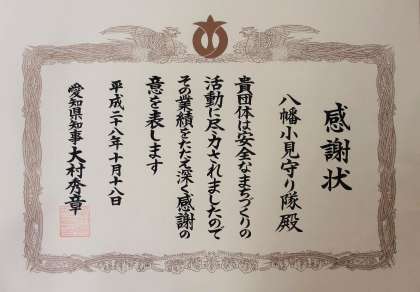 感謝状
八幡小見守り隊殿
貴団体は安全なまちづくりの
活動に尽力されましたので
その業績をたたえ深く感謝の
意を表します
平成二十八年十月十八日
愛知県知事大村秀章